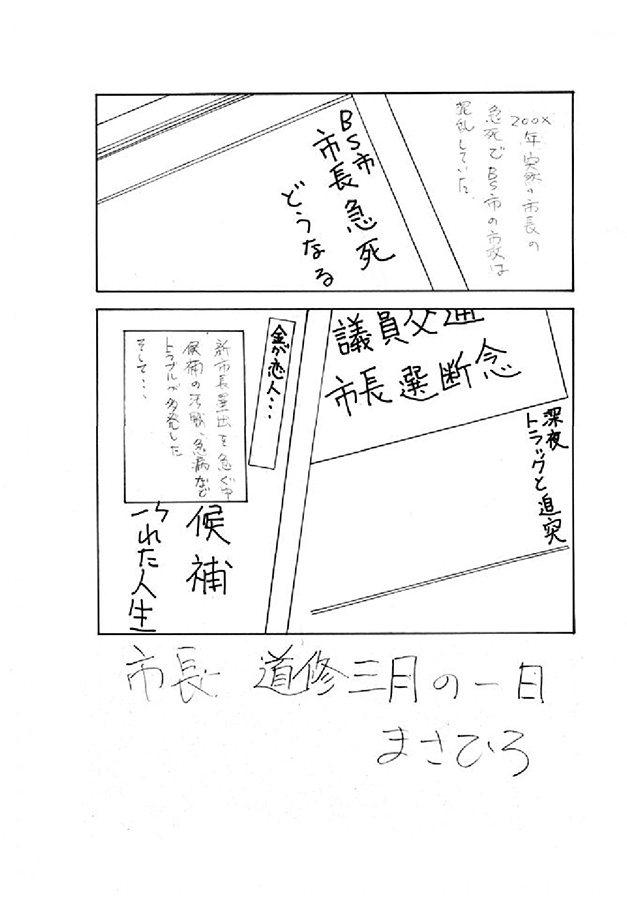 200X年突然の市長の
急死でBS市の市政は
混乱していた
BS市
市長急死
どうなる
議員交通
市長選断念
深夜
トラックと追突
金が恋人・・・
新市長選出を急ぐ中
候補の汚職、急病など
トラブルが多発した
そして・・・
候補
られた人生
市長 道修三月の一日
まさひろ